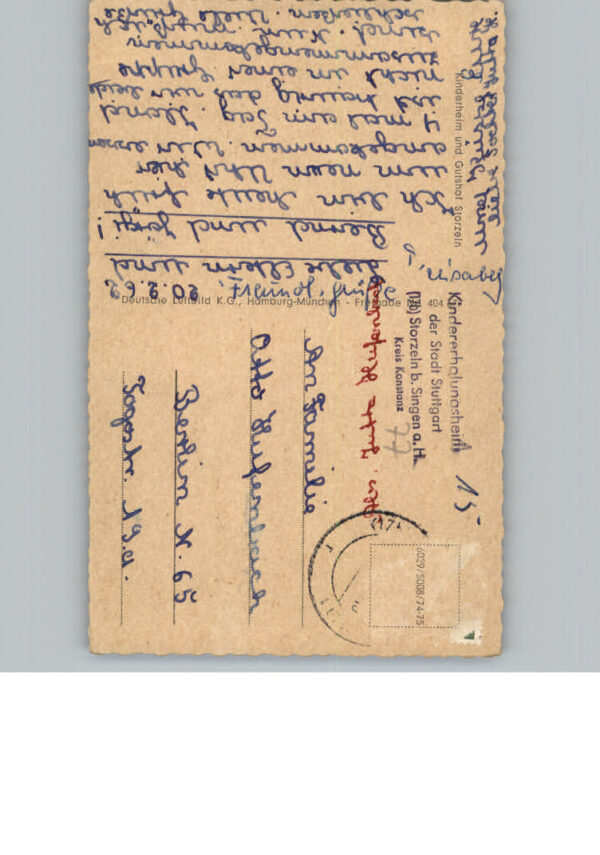 20.2.62
Liebe Eltern und
Bernd und Jörgi!
Ich bin heute früh
um neun Uhr hier
angekommen. Wir
mal ein Tag
ist traurig das wir beide
nicht in einer Gruppe
zusammengekommen
sind. Nun muß ich
schließen. Viele Grüße
Kinderheim und Gutshof Storzeln
Deutsche Luftbild K.G., Hamburg-München - Freigabe 404
Kindererholungsheim
der Stadt Stuttgart
(17b) Storzeln b. Singen a. H.
Kreis Konstanz
77
15
Abs. Jutta Hufenbach
6029/5008/74-75
An Familie
Otto Hufenbach
Berlin N. 65
Togostr. 19a.